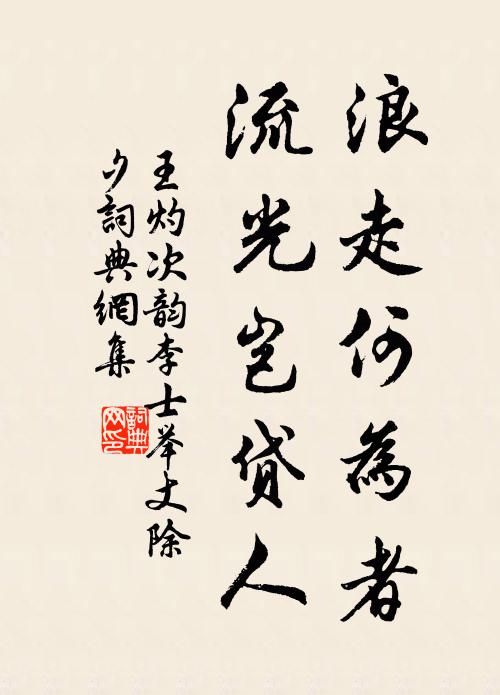 浪走何為者
流光岂贷人
王灼次韵李士举丈除
夕詞典網集
詞典
网印